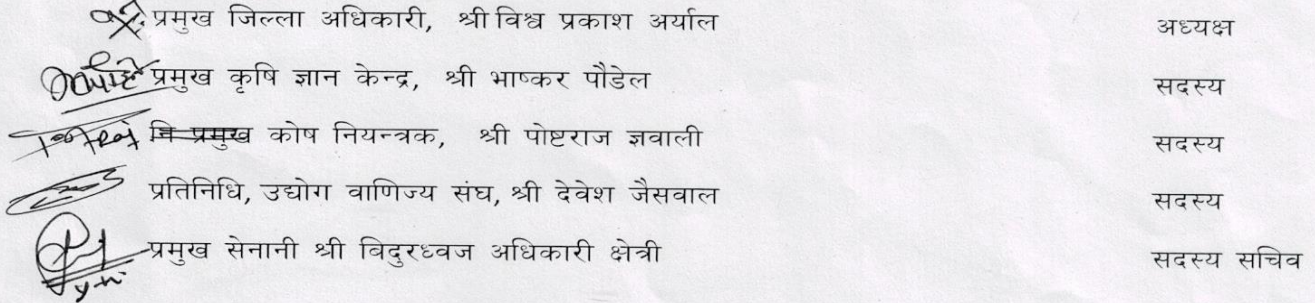 प्रमुख जिल्ला अधिकारी, श्री विश्व प्रकाश अर्याल अध्यक्ष
प्रमुख कृषि ज्ञान केन्द्र, श्री भाष्कर पौडेल सदस्य
नि प्रमुख कोष नियन्त्रक, श्री पोष्टराज ज्ञवाली सदस्य
प्रतिनिधि, उद्योग वाणिज्य संघ, श्री देवेश जैसवाल सदस्य
प्रमुख सेनानी श्री बिदुरध्वज अधिकारी क्षेत्री सदस्य सचिव